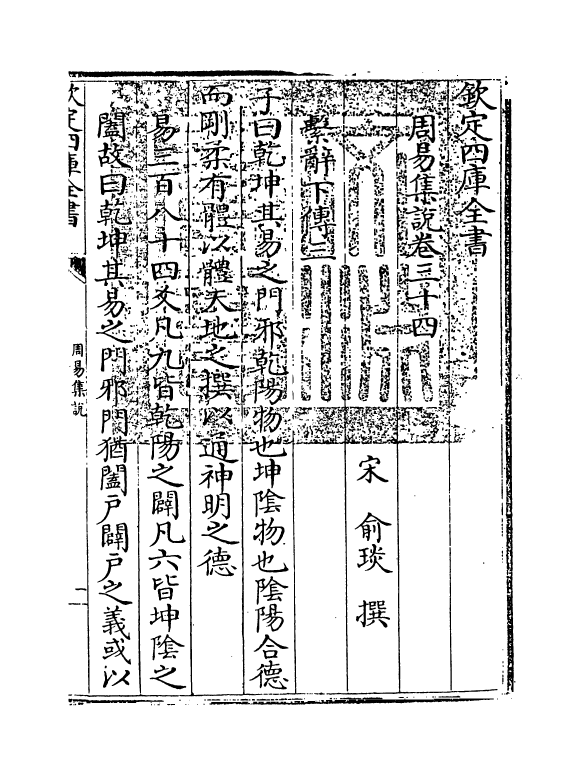 欽定四庫全書
周易集說卷三十四
宋 俞琰 撰
繫辭下傳三
子曰乾坤其易之門邪乾陽物也坤陰物也陰陽合德
而剛柔有體以體天地之撰以通神明之德
易三百八十四爻凡九皆乾陽之闢凡六皆坤陰之
闔故曰乾坤其易之門邪門猶闔戶闢戶之義或以
欽定四庫全書
周易集說
一